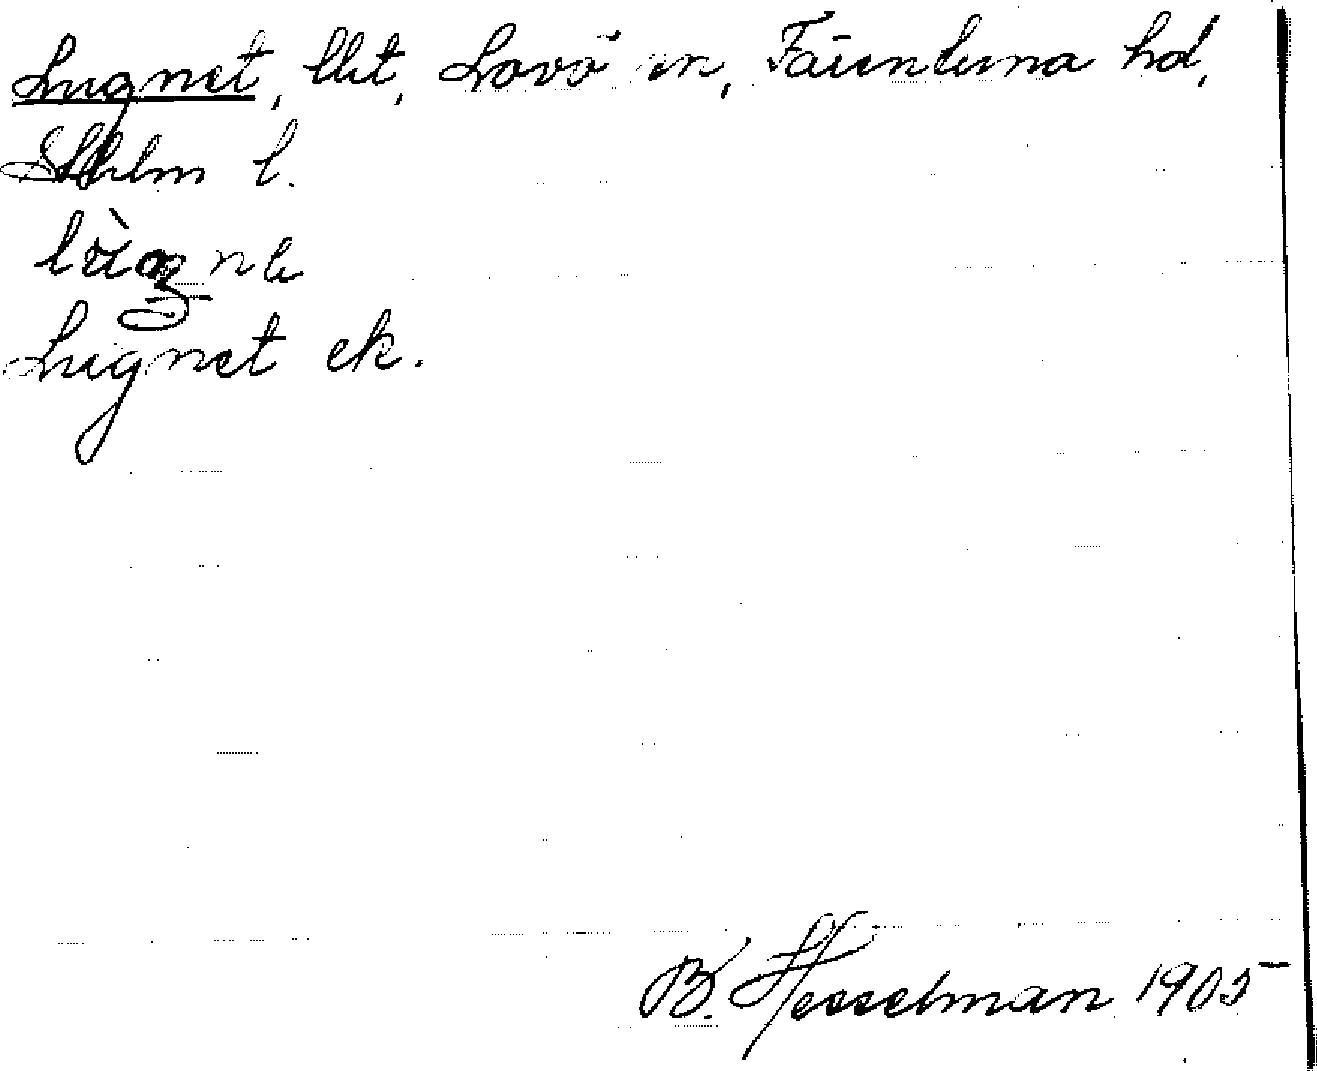 Lugnet, lht, Lovö sn, Färentuna hd,
Sthlm l.
Lugnet ek.
B. Hesselman 1905